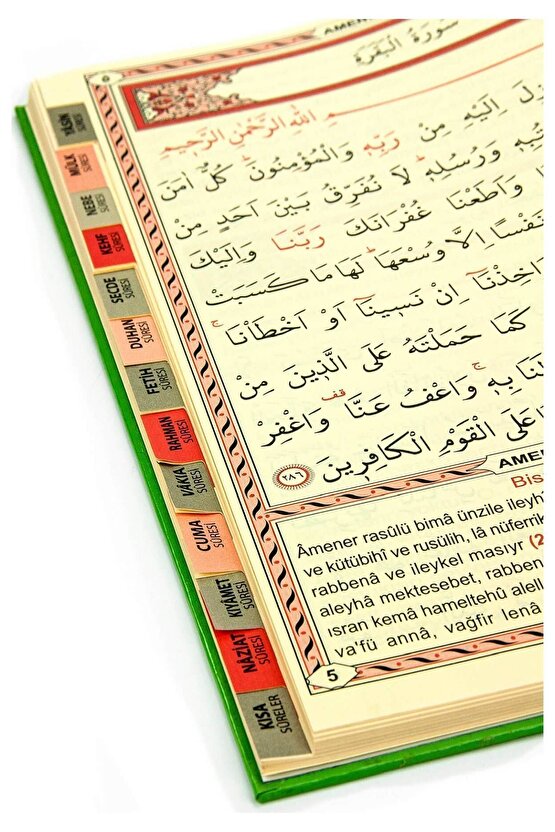 AMENE
6
سُورَةُ الْبَقَرَةِ
اللّٰهِ الرَّحْمٰنِ الرَّحٖيمِ
اِلَيْهِ مِنْ رَبِّهٖ وَالْمُؤْمِنُونَۜ كُلٌّ اٰمَنَ
وَرُسُلِهٖ۠ لَا نُفَرِّقُ بَيْنَ اَحَدٍ مِنْ
وَاَطَعْنَا غُفْرَانَكَ رَبَّنَا وَاِلَيْكَ
نَفْسًا اِلَّا وُسْعَهَاۜ لَهَا مَا كَسَبَتْ
اِنْ نَسٖينَٓا اَوْ اَخْطَأْنَاۚ
كَمَا حَمَلْتَهُ عَلَى الَّذٖينَ مِنْ
لَنَا بِهٖۚ وَاعْفُ عَنَّا۠ وَاغْفِرْ
عَلَى الْقَوْمِ الْكَافِرٖينَ
٢٨٦
AMENE
Bis
Âmener rasûlü bimâ ünzile ileyhi
ve kütübihî ve rusülih, lâ nüferrik
rabbenâ ve ileykel masıyr (2
aleyhâ mektesebet, rabben
ısran kemâ hameltehû alell
va'fü annâ, vağfir lenâ
5
YÂSİN
SÛRESİ
MÜLK
SÛRESİ
NEBE
SÛRESİ
KEHF
SÛRESİ
SECDE
SÛRESİ
DUHAN
SÛRESİ
FETİH
SÛRESİ
RAHMAN
SÛRESİ
VÂKIA
SÛRESİ
CUMA
SÛRESİ
KIYÂMET
SÛRESİ
NÂZİAT
SÛRESİ
KISA
SÛRELER